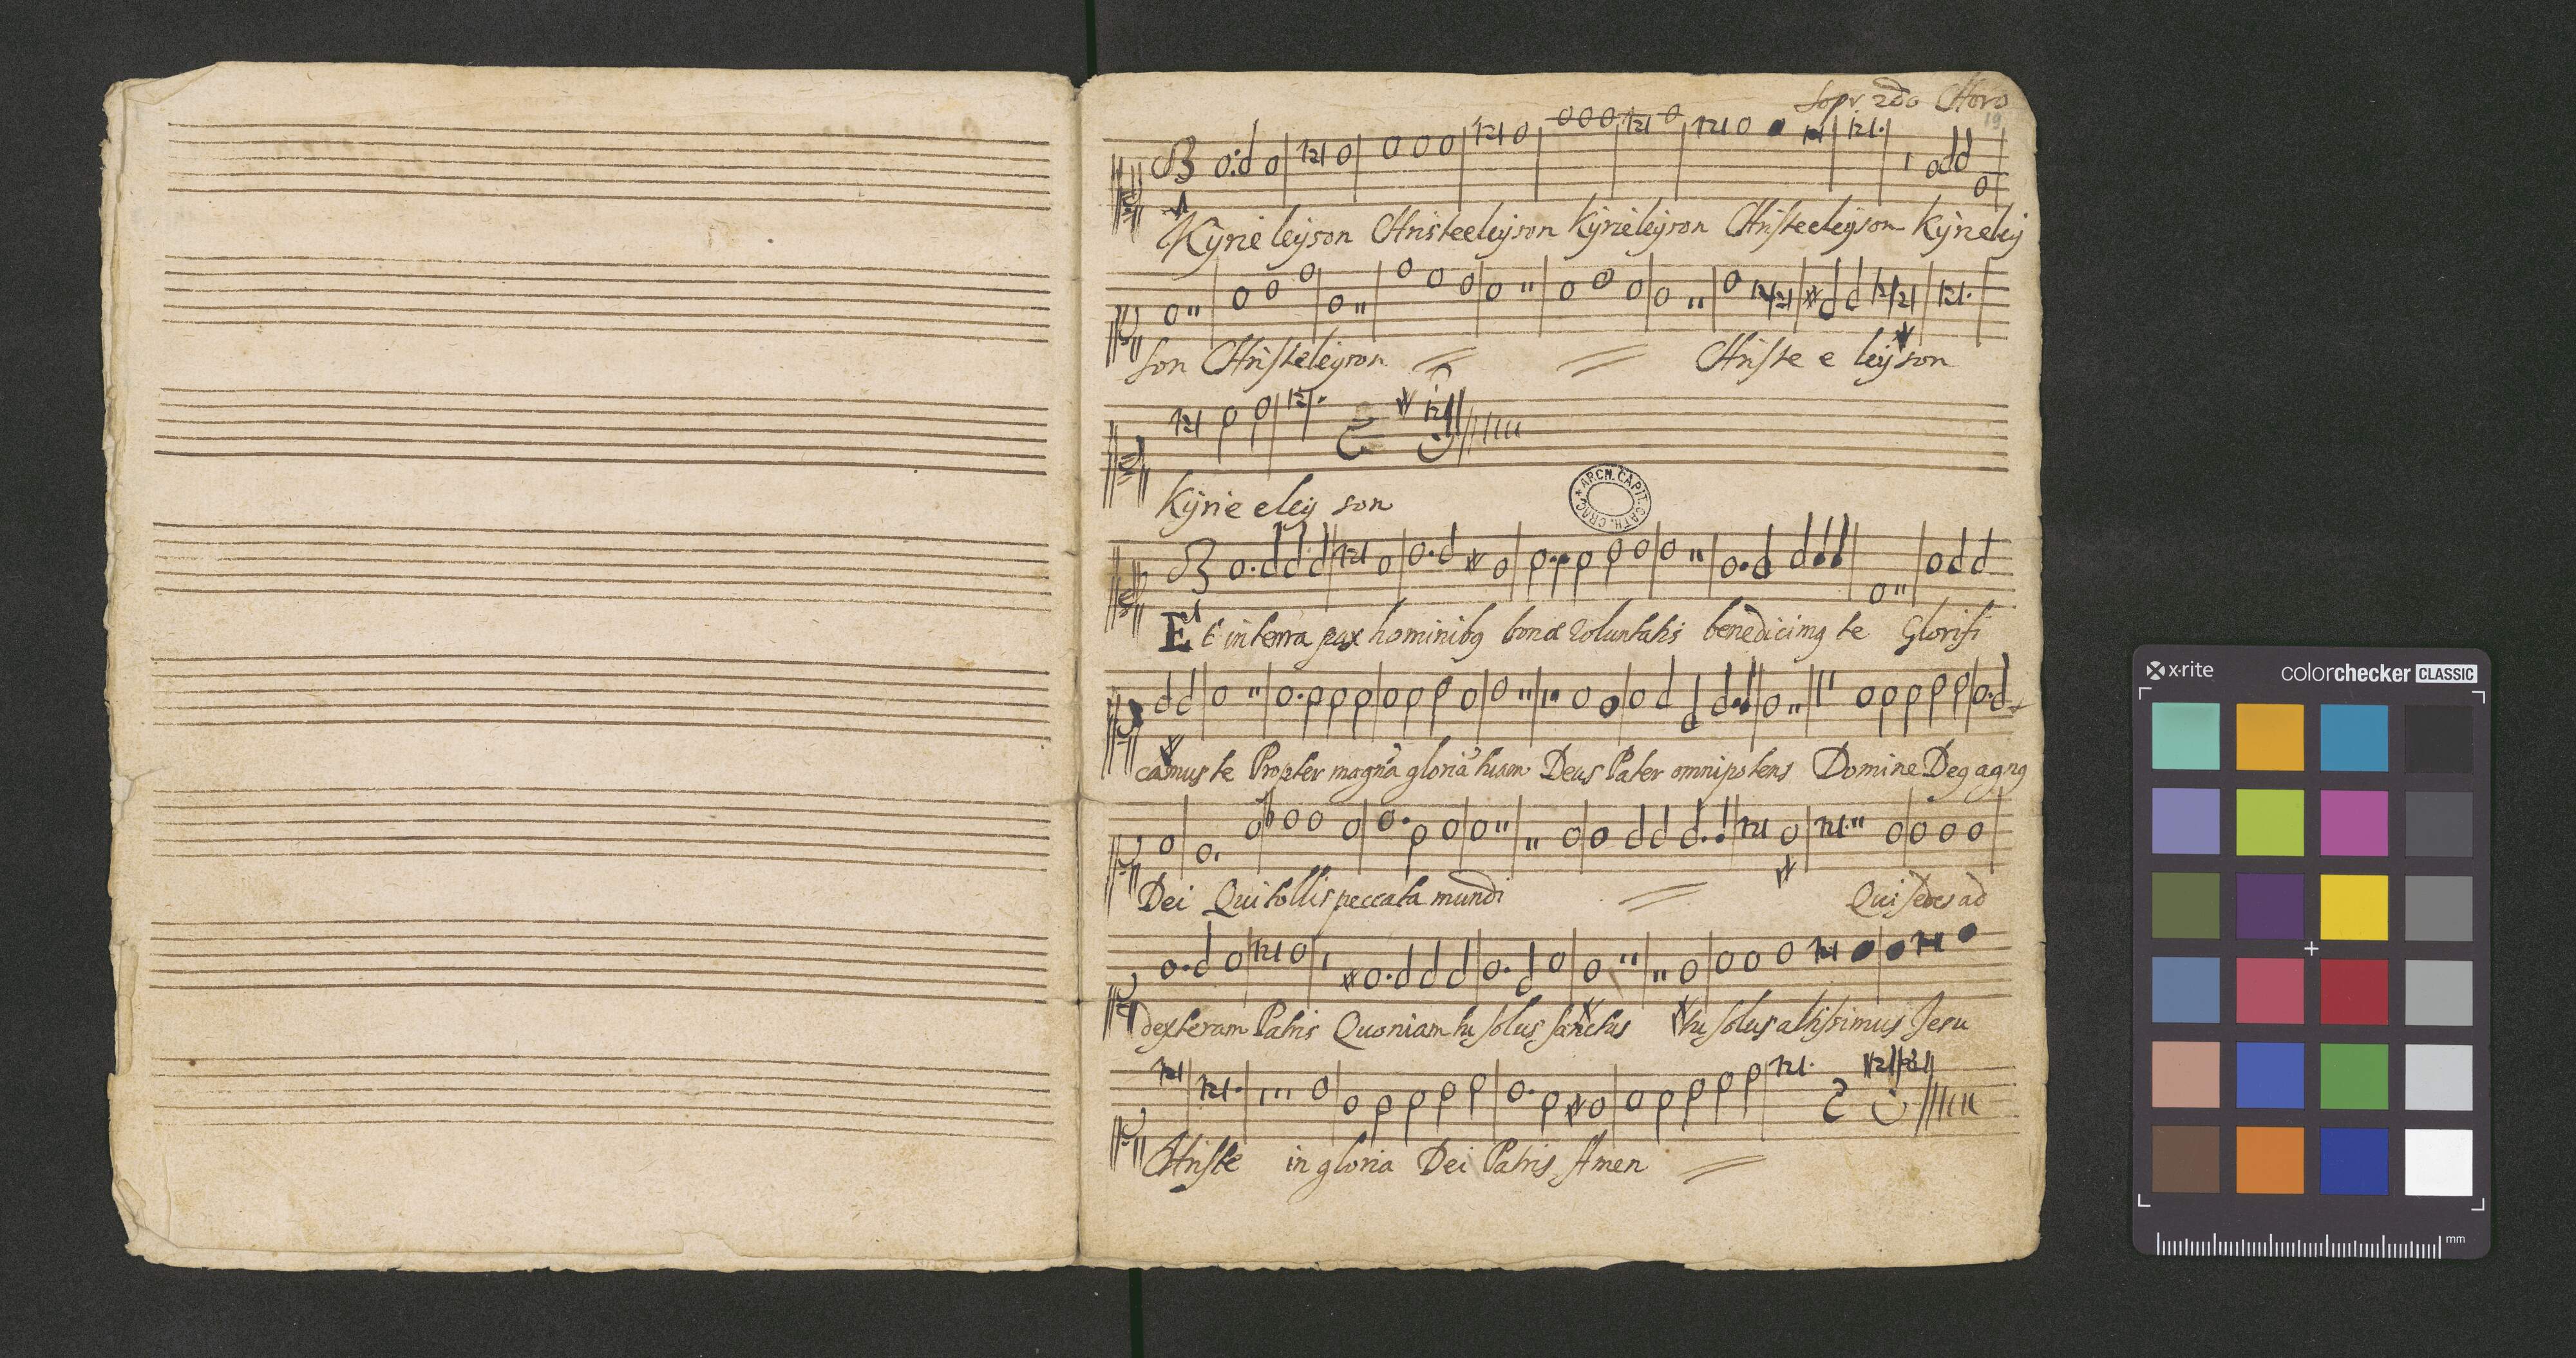 Sopr. 2do Choro
19
Kyrie leyson Christeeleyson Kyrieleyson Christeeleyson Kyrieley
son Christeleyson Christe e ley son
Kyrie eley son
ARCH. CAPIT. CATH. CRAC.
Et in terra pax hominibq bonæ voluntatis benedicimq te Glorifi
camus te Propter magnã gloriã tuam Deus Pater omnipotens Domine Deq agnq
Dei Qui tollis peccata mundi Qui sedes ad
dexteram Patris Quoniam tu solus sanctus tu solus altissimus Jesu
Christe in gloria Dei Patris Amen
x·rite colorchecker CLASSIC
mm